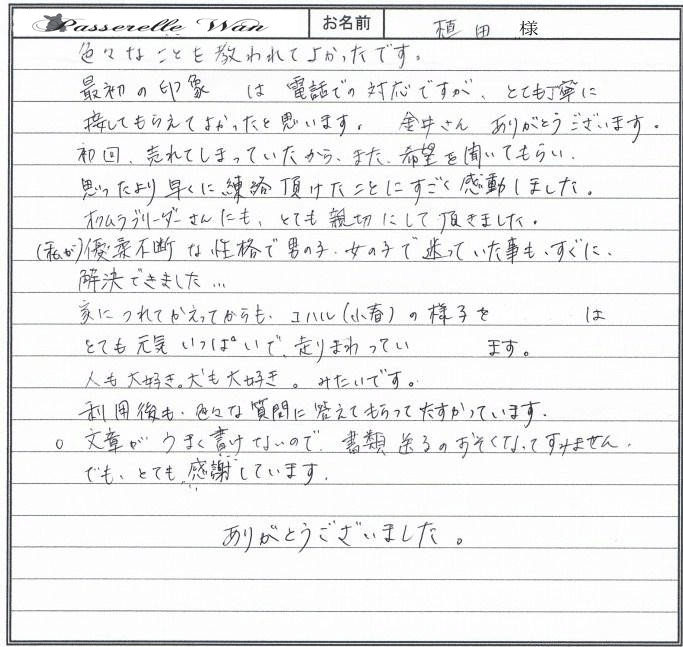 Passerelle Wan お名前 植田 様
色々なことを教われてよかったです。
最初の印象 は 電話での対応ですが、とても丁寧に
接してもらえてよかったと思います。 金井さん ありがとうございます。
初回、売れてしまっていたから、また、希望を聞いてもらい、
思ったより早くに練絡頂けたことにすごく感動しました。
オクムラブリーダーさんにも、とても親切にして頂きました。
(私が)優柔不断な性格で男の子、女の子で迷っていた事も、すぐに、
解決できました…
家につれてかえってからも、コハル(小春)の様子を は
とても元気いっぱいで、走りまわってい ます。
人も大好き。犬も大好き。みたいです。
利用後も、色々な質問に答えてもらってたすかっています。
○ 文章がうまく書けないので、書類送るのおそくなってすみません。
でも、とても感謝しています。
ありがとうございました。